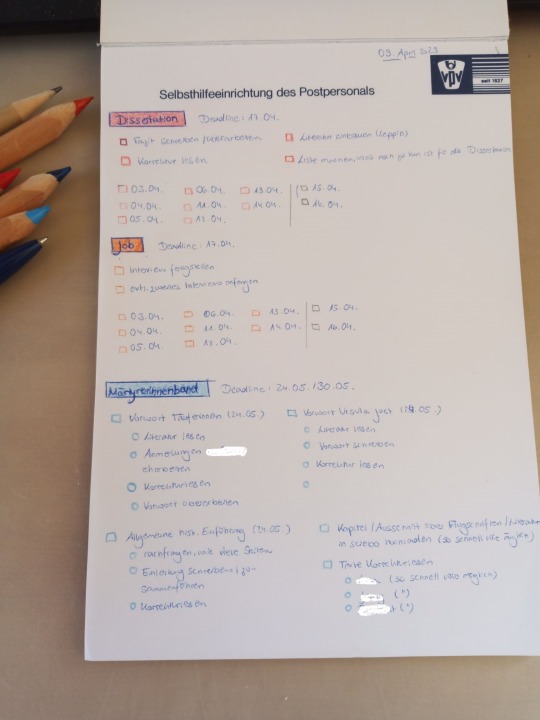 03. April 2023
VPV
seit 1827
Selbsthilfeeinrichtung des Postpersonals
Dissertation Deadline: 17.04.
Fazit schreiben/überarbeiten
Literatur einbauen (Zeppin)
Korrektur lesen
Liste machen, was noch zu tun ist für die Dissertation
03.04. 06.04. 13.04. 15.04.
04.04. 11.04. 14.04. 16.04.
05.04. 12.04.
Job Deadline: 17.04.
Interview fertigstellen
evtl. zweites Interview anfangen
03.04. 06.04. 13.04. 15.04.
04.04. 11.04. 14.04. 16.04.
05.04. 12.04.
Märtyrerinnenband Deadline: 24.05./30.05.
Vorwort Täuferinnen (24.05.)
Vorwort Ursula Jost
Literatur lesen
Literatur lesen
Anmerkungen
einarbeiten
Vorwort schreiben
Korrekturlesen
Korrektur lesen
Vorwort überarbeiten
Allgemeine hist. Einführung (24.05.)
nachfragen, wie viele Seiten
Einleitung schreiben/zu-
sammenführen
Korrekturlesen
Kapitel/Ausschnitt über Flugschriften/Literatur
in scieboo hochladen (so schnell wie möglich)
Texte Korrekturlesen
(so schnell wie möglich)
(")
(")